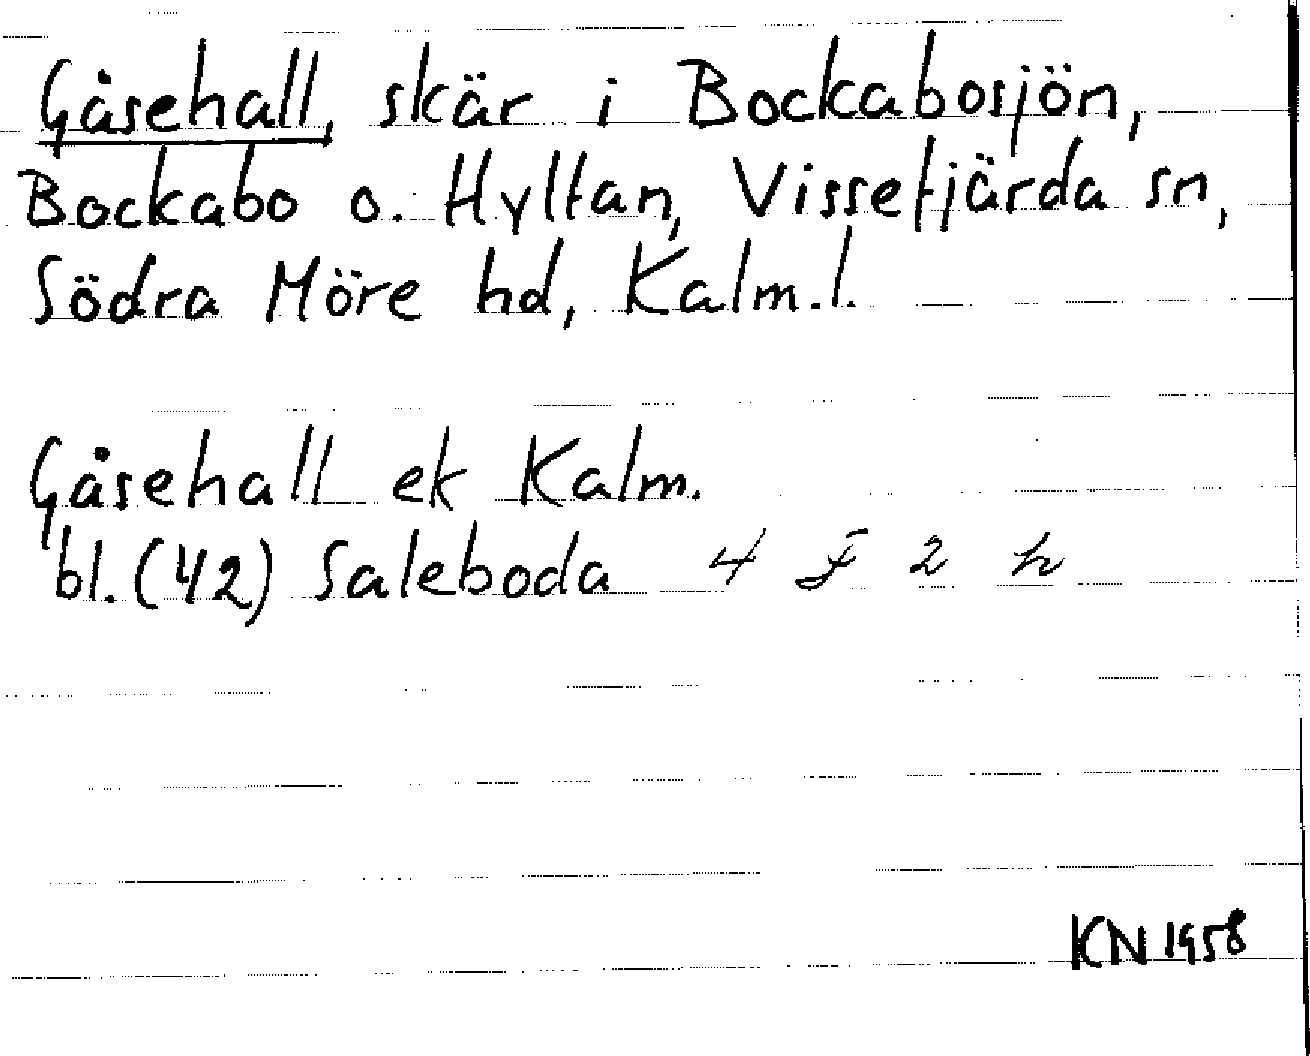 Gåsehall, skär i Bockabosjön,
Bockabo o. Hyltan, Vissefjärda sn,
Södra Möre hd, Kalm.l.
Gåsehall ek Kalm.
bl. (42) Saleboda 4 F 2 h
KN 1958